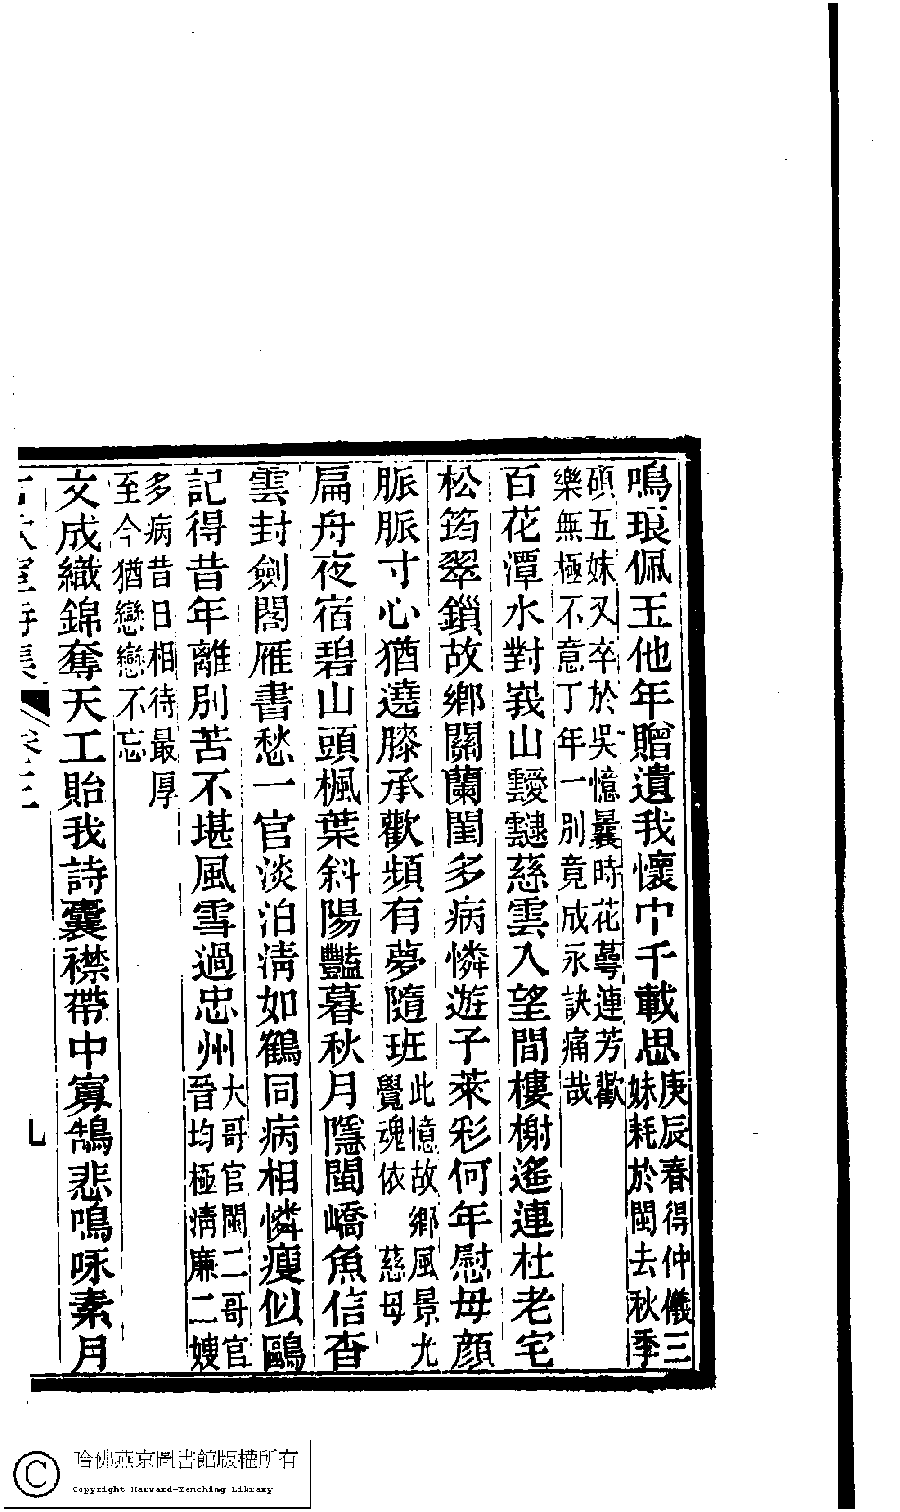 鳴琅佩玉他年贈遺我懷中千載思庚辰春得仲儀三
妹耗於閩去秋季
碩五妹又卒於吳憶曩時花蕚連芳歡
樂無極不意丁年一別竟成永訣痛哉
百花潭水對峩山靉靆慈雲入望間樓榭遙連杜老宅
松筠翠鎖故鄉關蘭閨多病憐遊子萊彩何年慰母顏
脈脈寸心猶遶膝承歡頻有夢隨班此憶故鄉風景尤
覺魂依 慈母
扁舟夜宿碧山頭楓葉斜陽豔暮秋月隱閩嶠魚信杳
雲封劍閣雁書愁一官淡泊清如鶴同病相憐瘦似鷗
記得昔年離別苦不堪風雪過忠州大哥官閩二哥官
晉均極清廉二嫂
多病昔日相待最厚
至今猶戀戀不忘
文成織錦奪天工貽我詩囊襟帶中寡鵠悲鳴咏素月
卷三
七
哈佛燕京圖書館版權所有
Copyright Harvard-Yenching Library